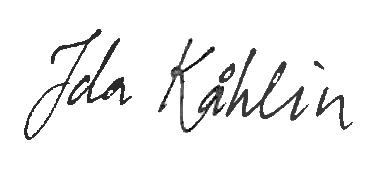 Ida Kåhlin